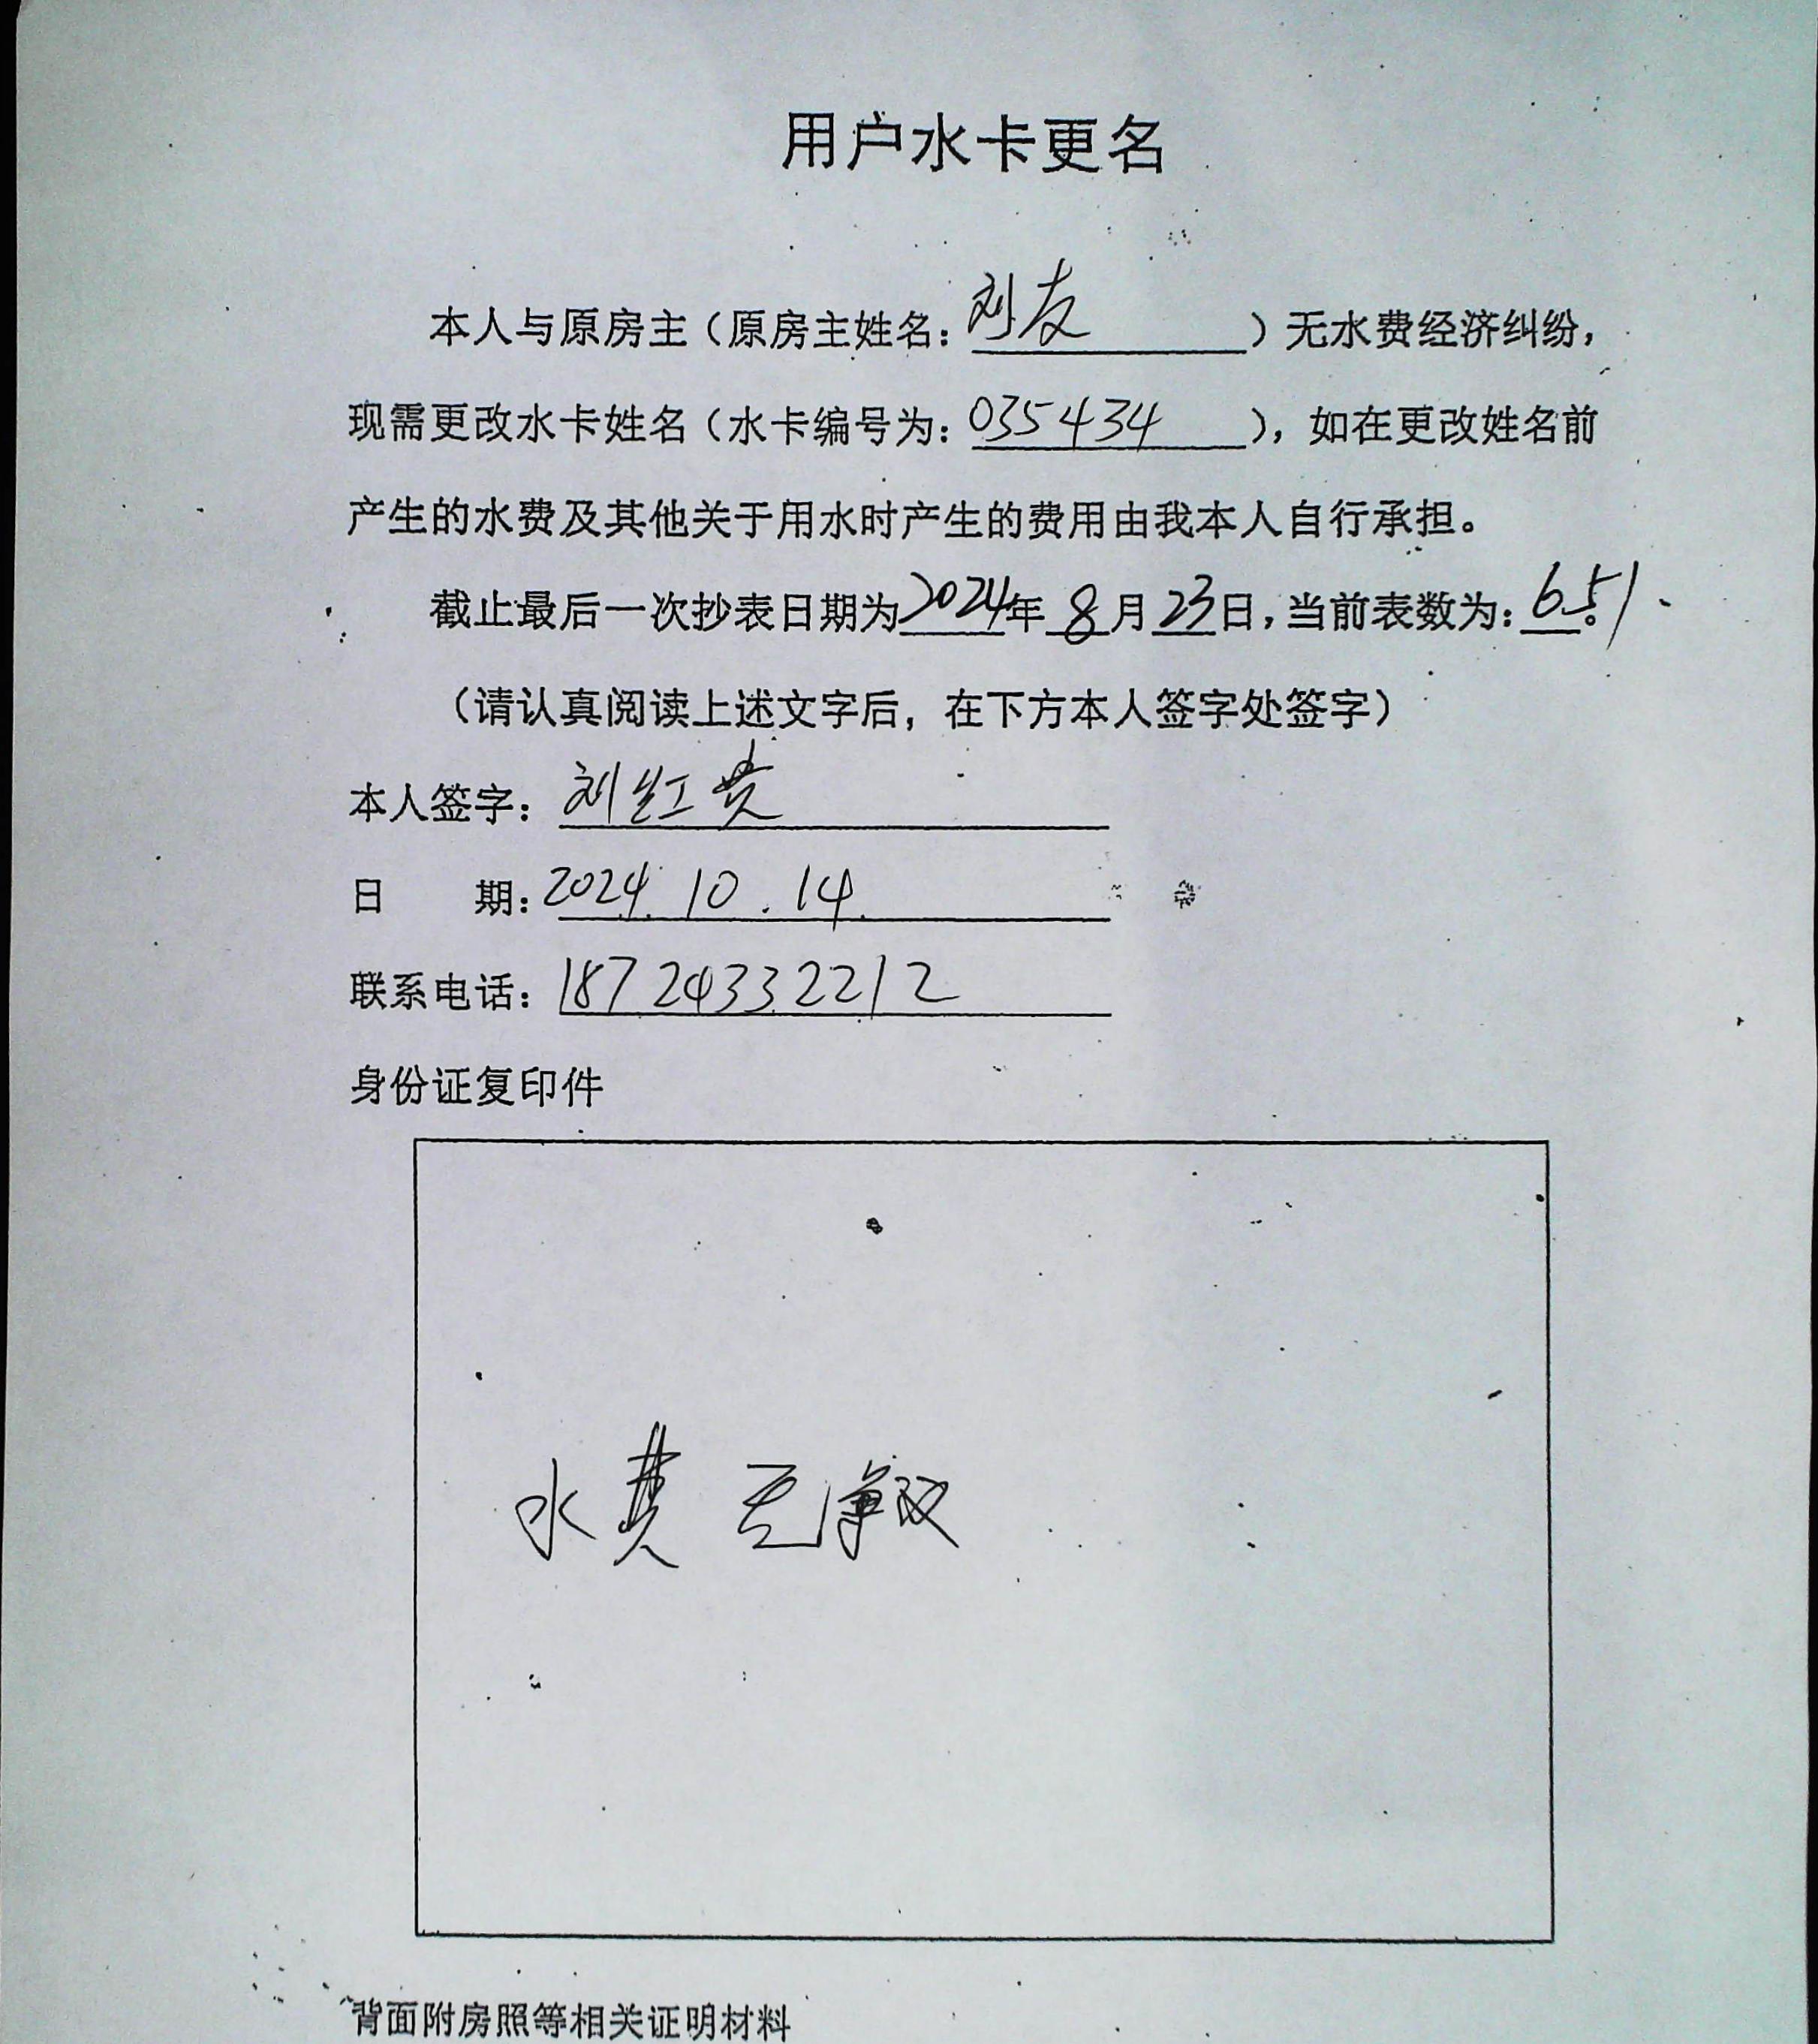 用户水卡更名
本人与原房主（原房主姓名：刘友）无水费经济纠纷，
现需更改水卡姓名（水卡编号为：035434），如在更改姓名前
产生的水费及其他关于用水时产生的费用由我本人自行承担。
截止最后一次抄表日期为2024年8月23日，当前表数为：651。
（请认真阅读上述文字后，在下方本人签字处签字）
本人签字：刘红
日 期：2024.10.14.
联系电话：18724332212
身份证复印件
水费
背面附房照等相关证明材料